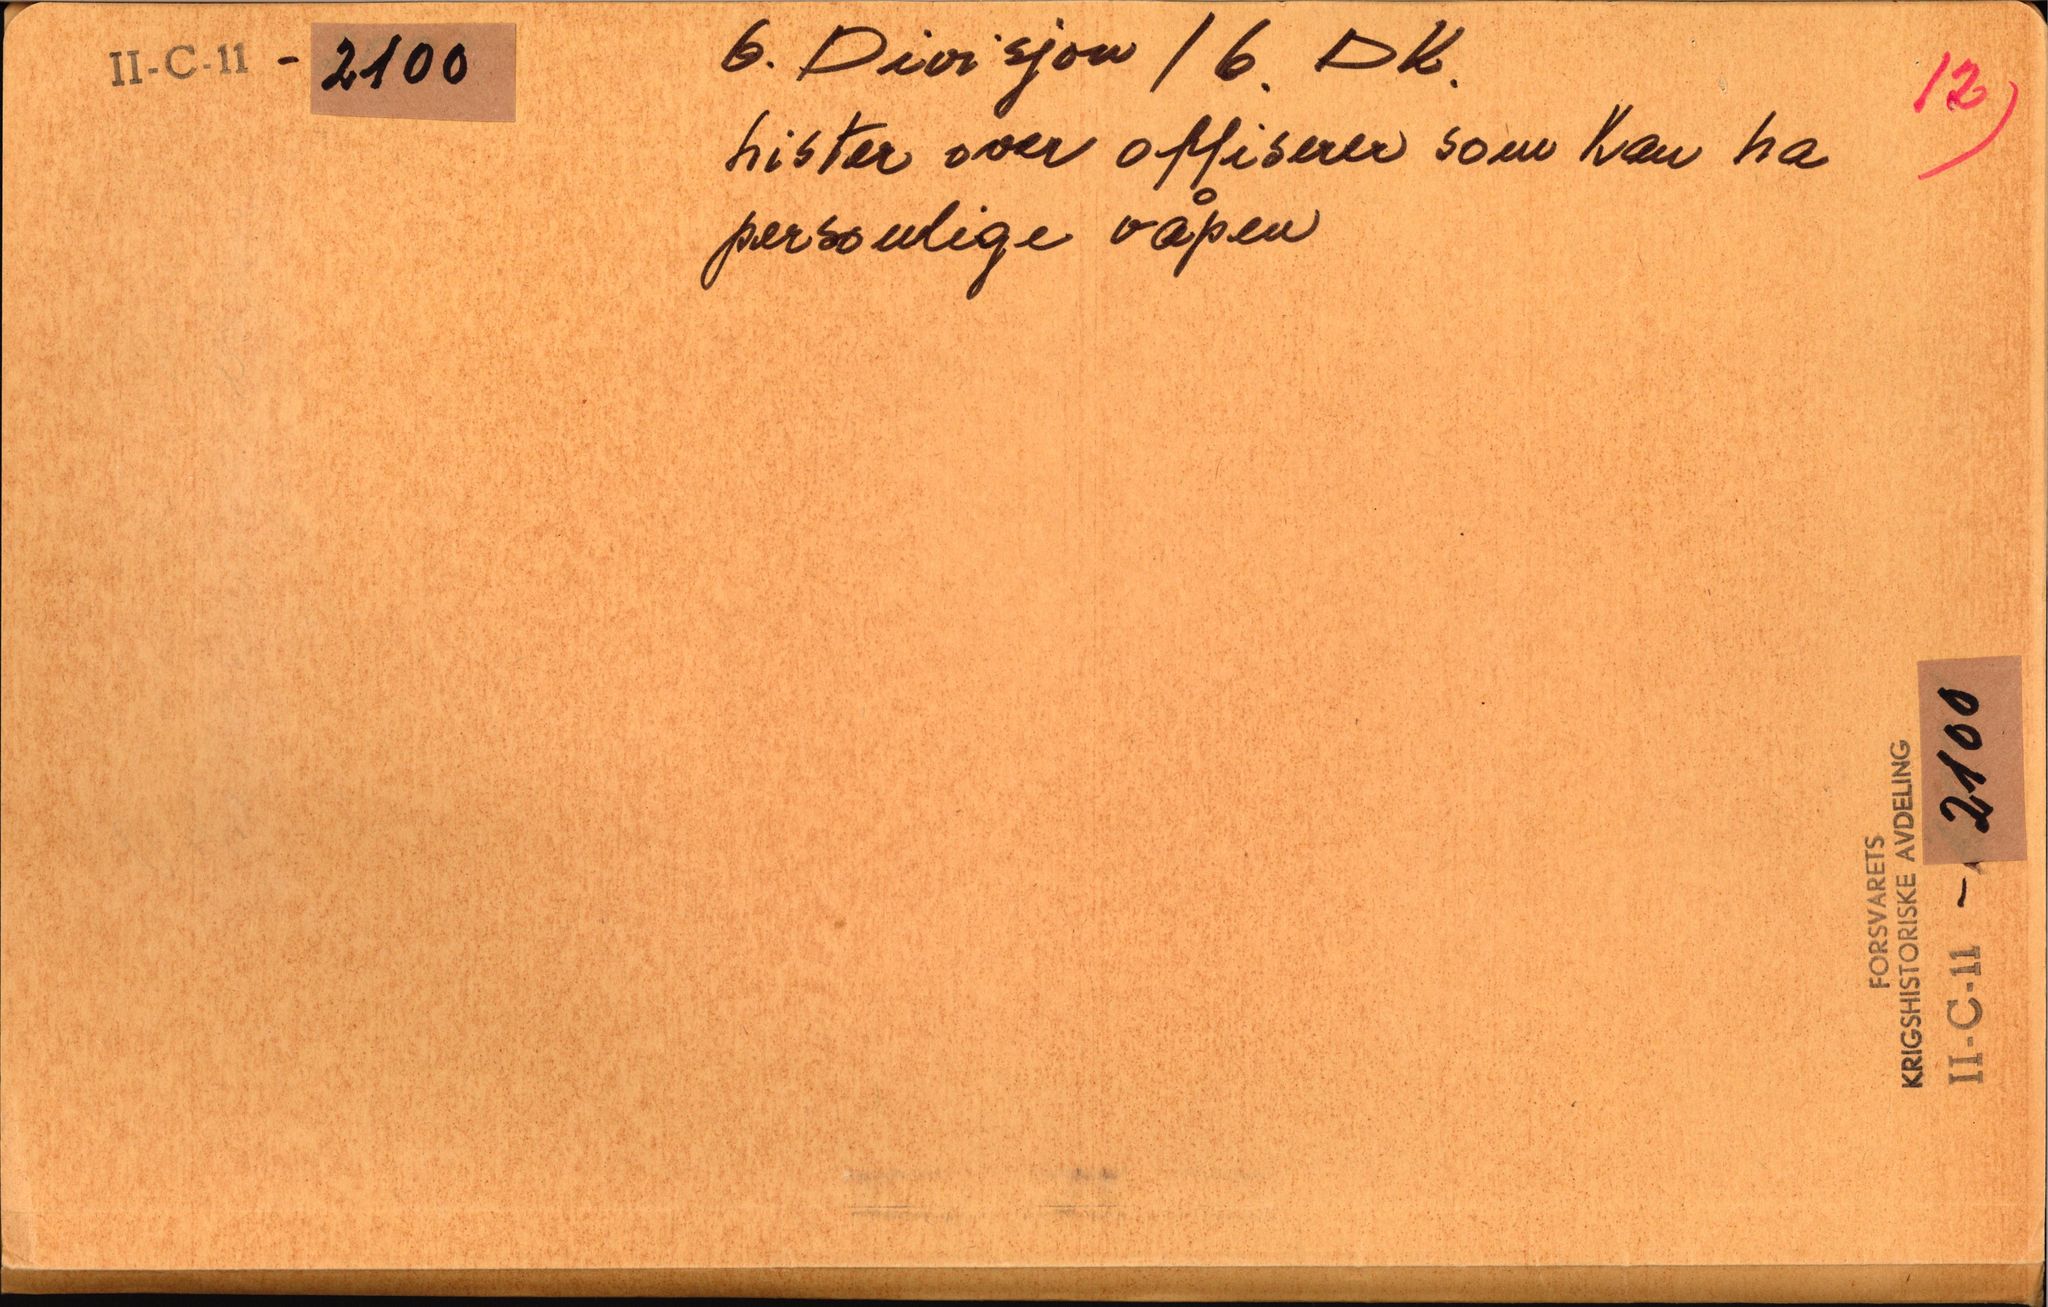 II-C-11 - 2100
6. Divisjon / 6. DK.
Lister over offiserer som kan ha
personlige våpen
12)
FORSVARETS
KRIGSHISTORISKE AVDELING
II-C-11 - 2100